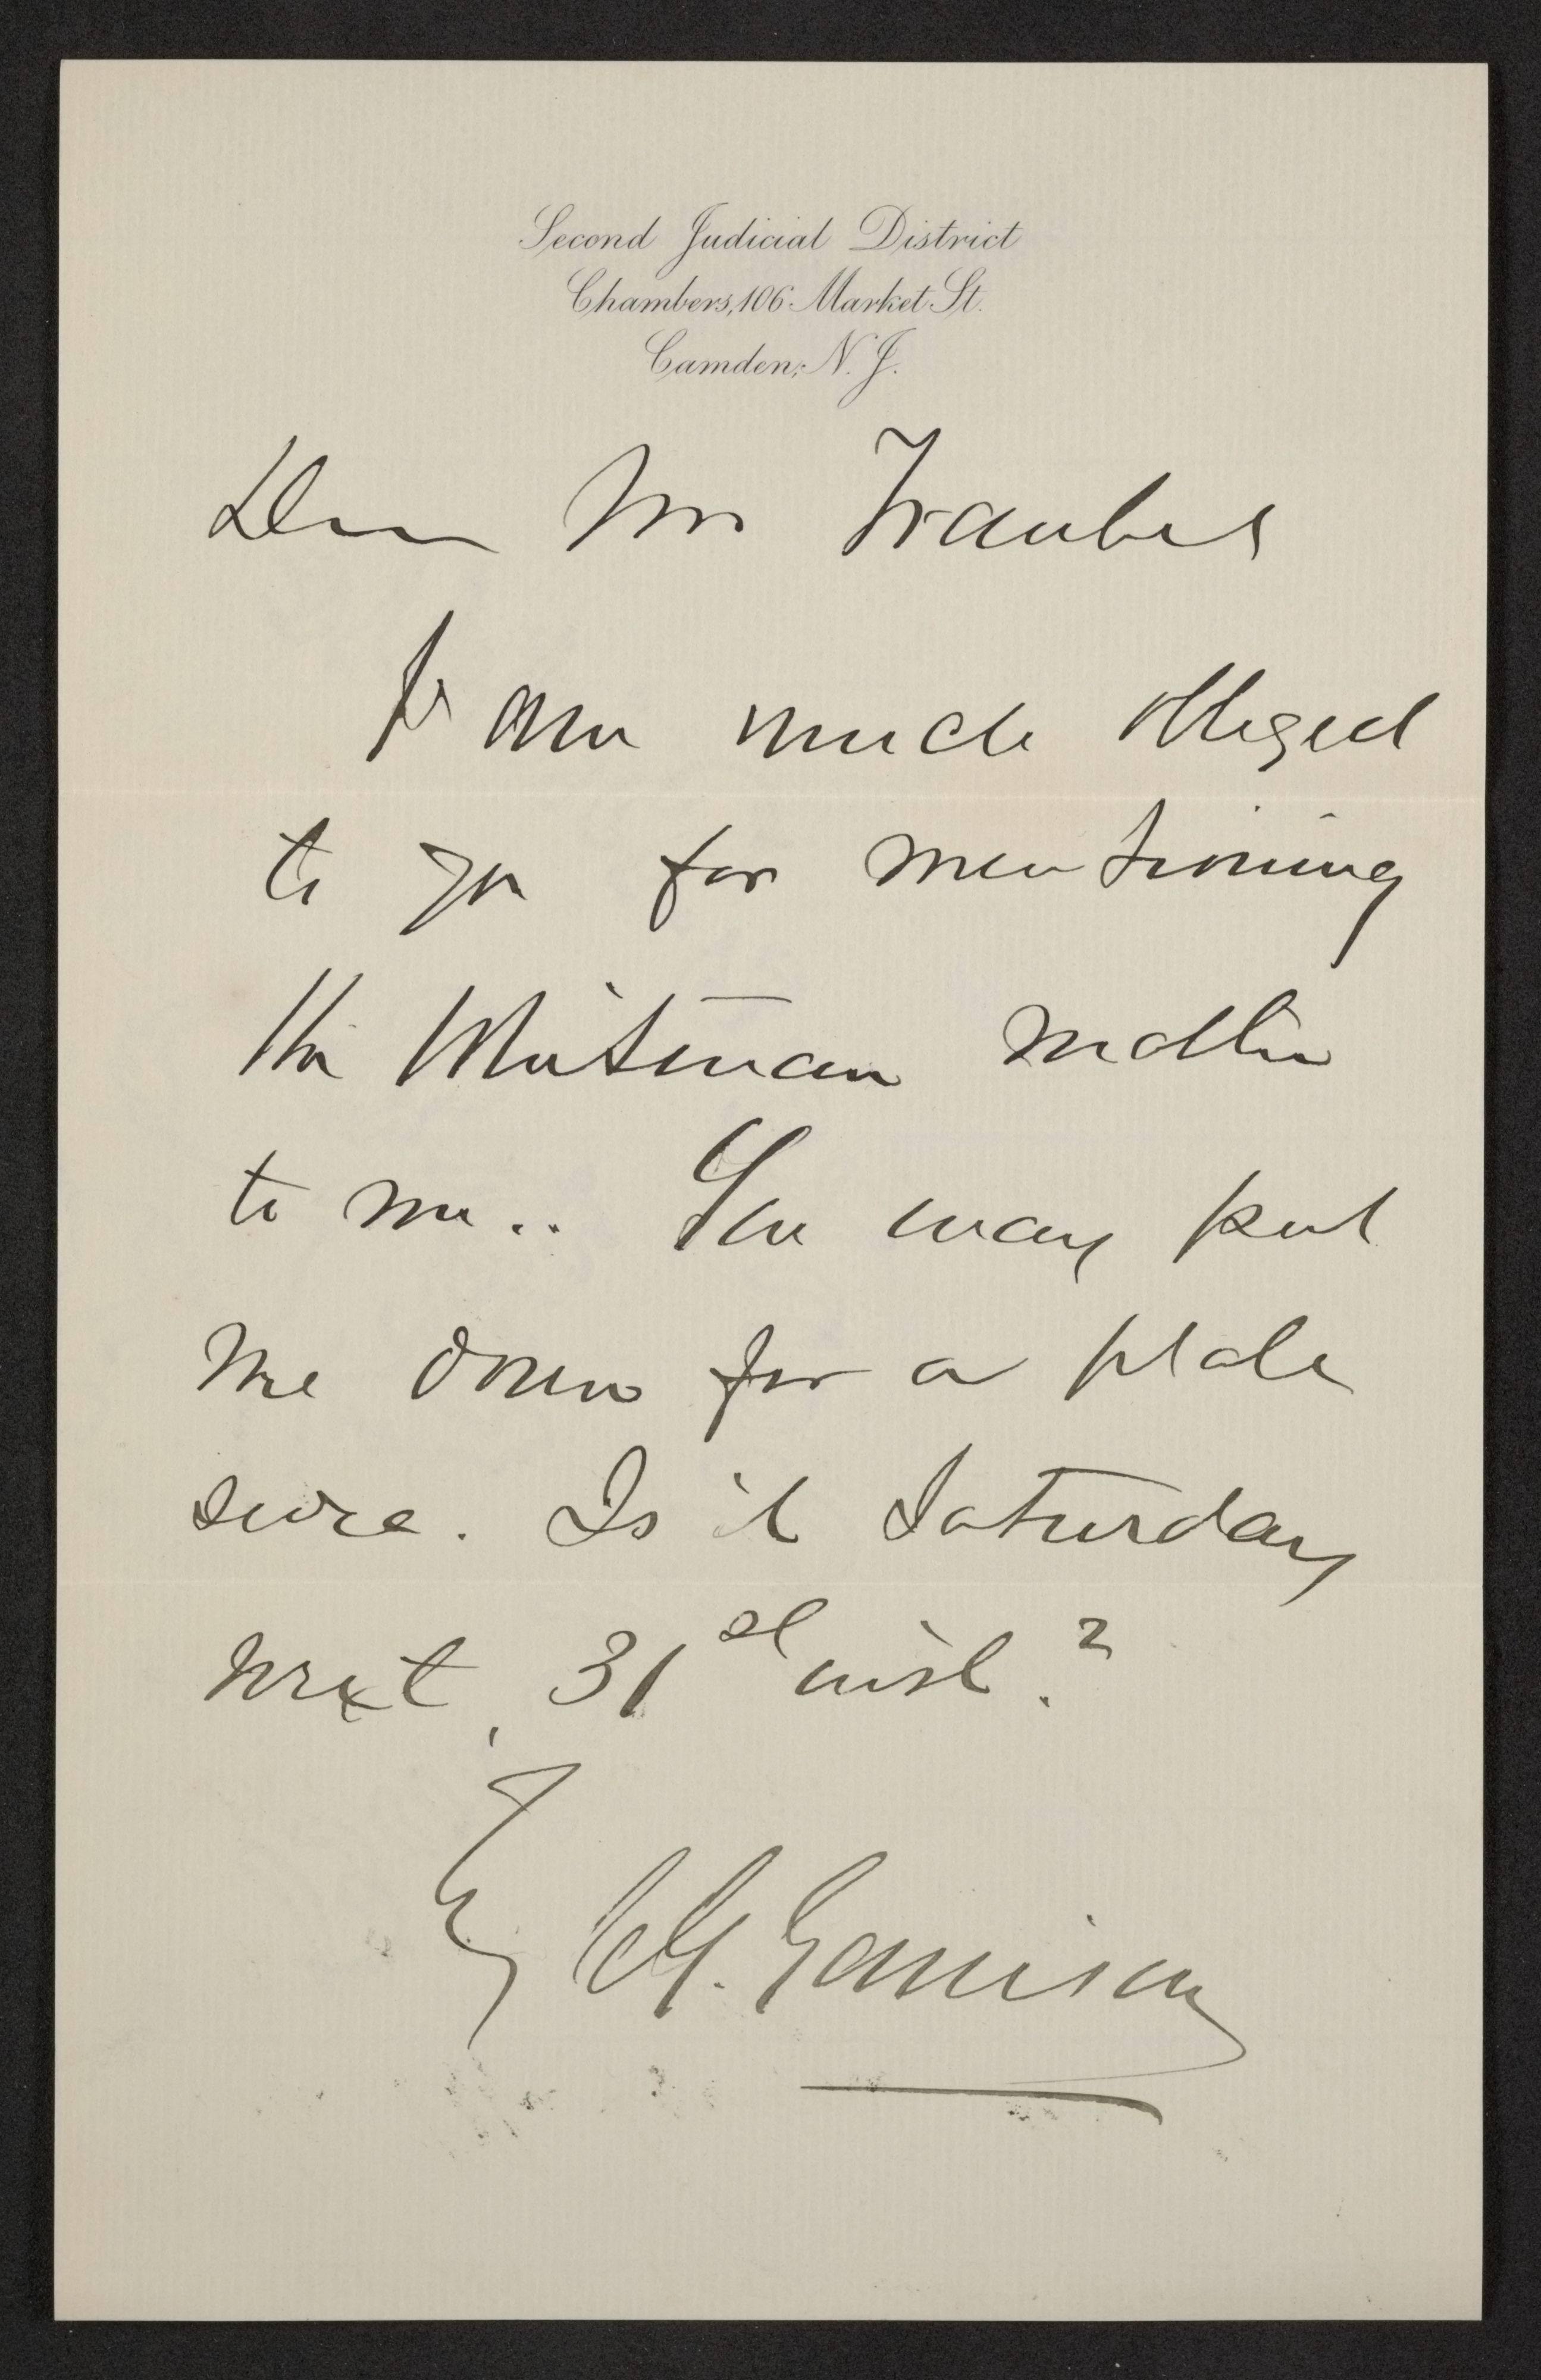 Second Judicial District
Chambers, 106 Market St.
Camden, N. J.
Dear Mr Traubel
I am much obliged
to you for mentioning
the Whitman matter
to me.. You may put
me down for a plate
sure. Is it Saturday
next, 31st inst.?
C. G. Garrison